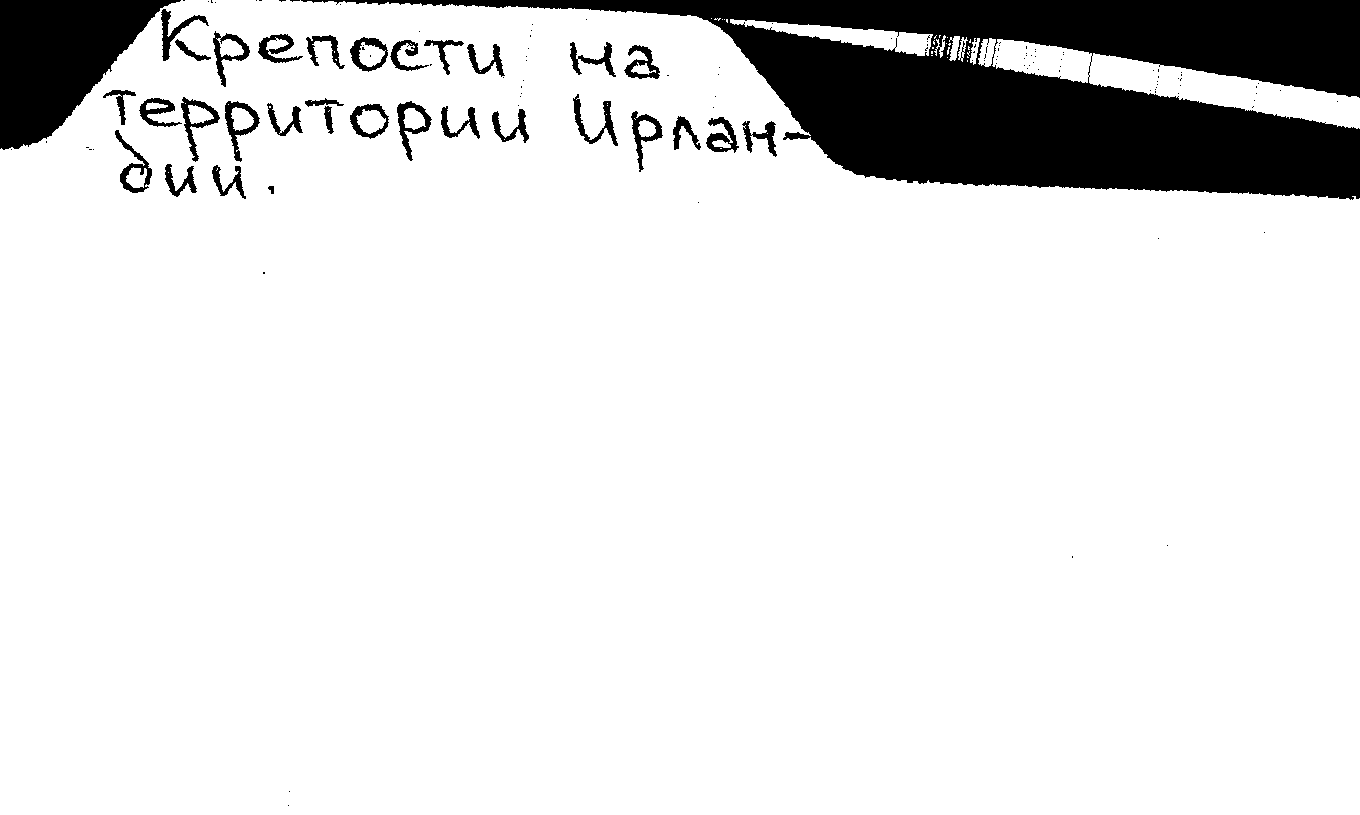 Крепости на
территории Ирлан-
дии.